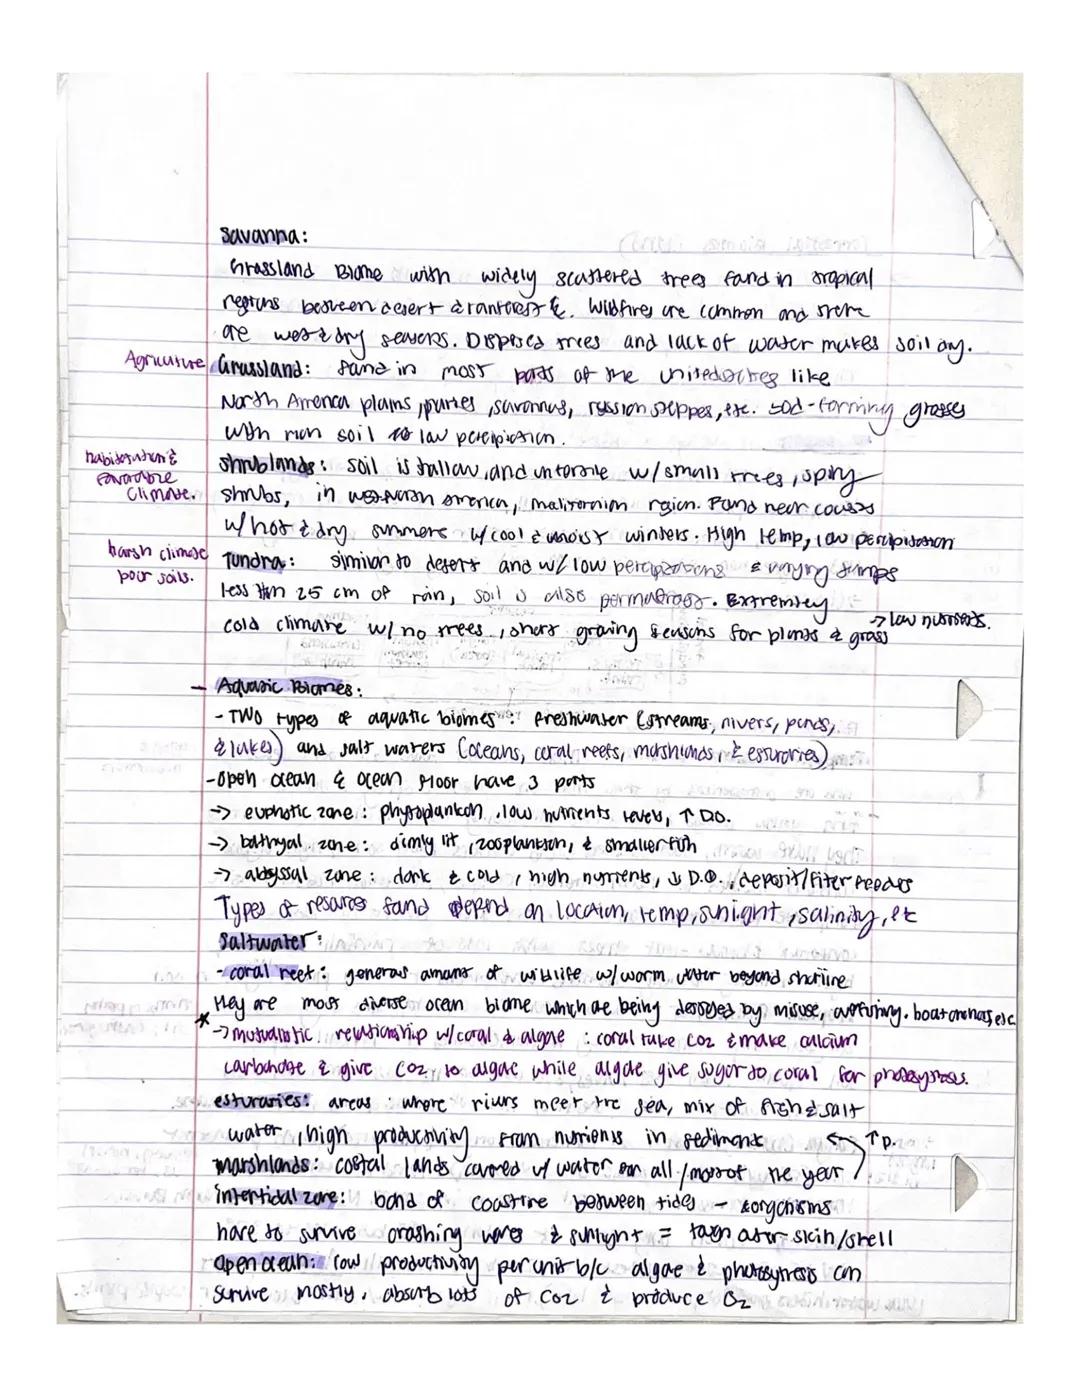 Savanna:
Grassland Biome with widely scattered trees fand in tropical
regions between desert & ranforest &. Wildfires are common and there
are wet & dry seasons. Dispersed trees and lack of water makes soil dry.
Agriculture Grassland: fand in most parts of the united states like
North America plains, savannas, russion steppes, etc. sod-forming grasses
with rich soil low percipiction.
& favorable climate.
Shrublands: soil is fallow, and w/ small trees, spiny
shrubs, in west North America, region. Fand near
w/ hot & dry summers w/ cool & moist winters. High temp, low percipitation
harsh climate poor soils.
Tundra: similar to desert and w/ low & varying temps
less than 25 cm of rain, soil is also permafrost. Extremley
cold climate w/ no trees, short graing seasons for plants & grass → low nutrients.
- Aquatic Biomes:
- TWO types of aquatic biomes: freshwater (streams, rivers, ponds,
& lakes) and salt waters (oceans, coral reefs, marshlands, & esturaries)
- Open ocean & ocean floor have 3 parts
→ euphotic zone: low nutrients levels, ↑ DO.
→ bathyal zone: dimly lit, zooplankton, & smaller fish
→ abyssal zone: dark & cold, high nutrients, ↓ D.O., deposit/filter feeders
Types of fand depend on location, temp, sunlight, salinity, etc
Saltwater:
- coral reef: generous amant of wildlife w/ warm water beyond
* they are most diverse ocean biome which are being by misuse, etc
→ mutualistic relationship w/ coral & algae: coral take CO2 & make calcium
carbonate & give CO2 to algae while algae give sugar to coral for
esturaries: areas where rivers meet the sea, mix of & salt
water, high productivity from nutrients in sediments ↑ p.
marshlands: costal lands covered w/ water on all/most of the year
intertidal zone: band of between tides - organisms
have to survive crashing waves & sunlight = skin/shell
open ocean: low productivity per unit b/c algae & can
survive mostly, absorb lots of CO2 & produce O2